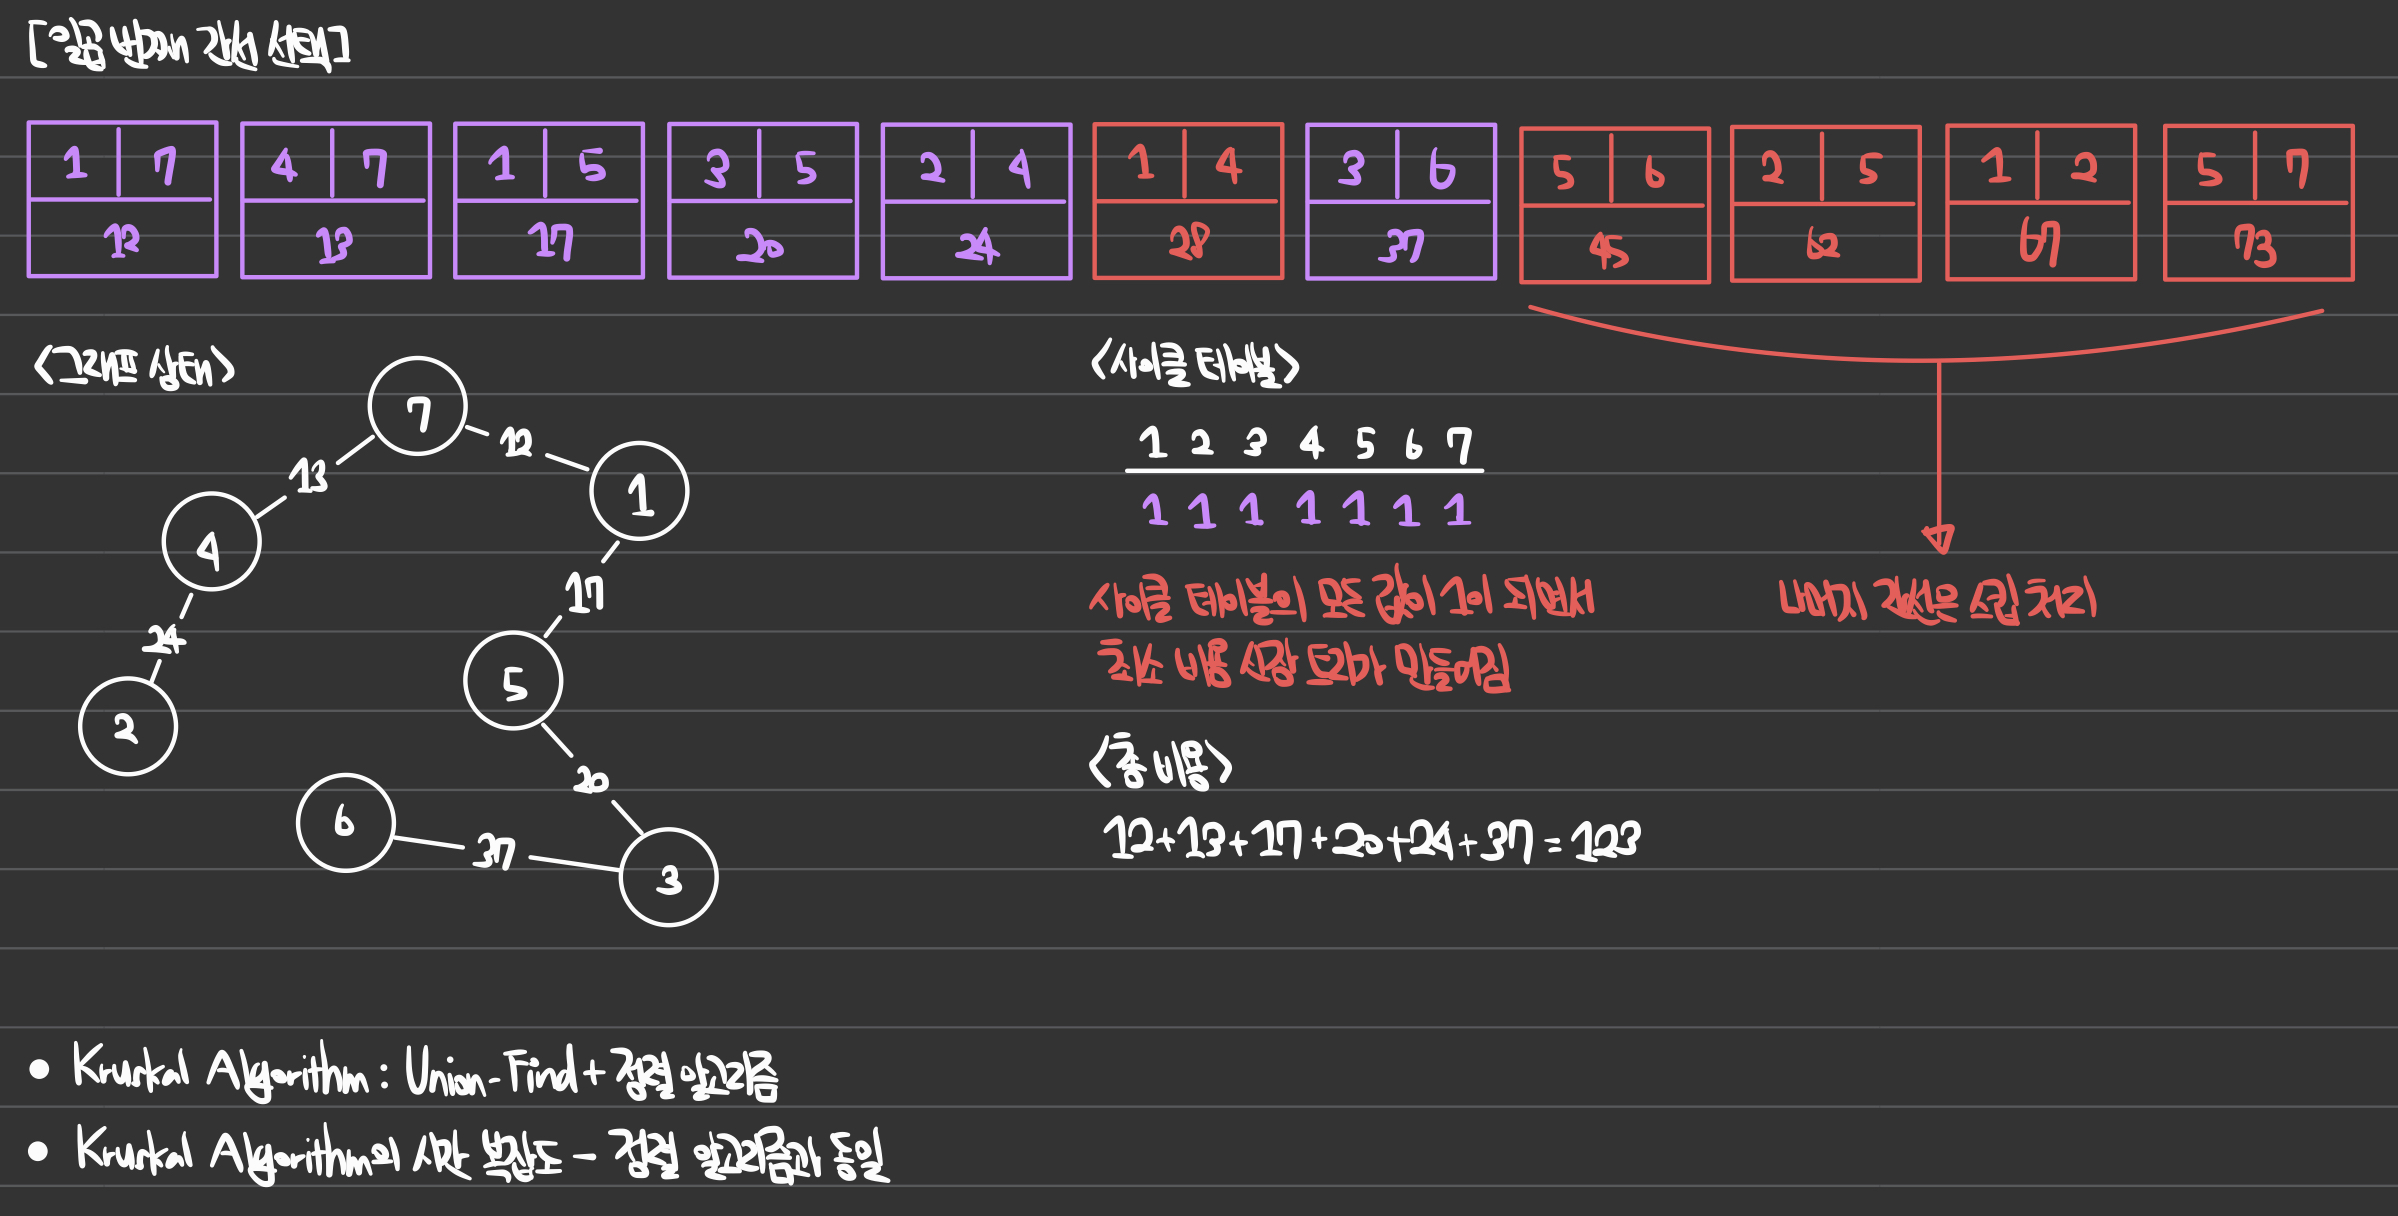 [일곱 번째 간선 선택]
1 7 4 7 1 5 3 5 2 4 1 4 3 6 5 6 2 5 1 2 5 7
12 13 17 20 24 28 37 45 62 67 73
<그래프 상태>
7
12
1
13
4
17
24
5
2
20
6
37
3
<사이클 테이블>
1 2 3 4 5 6 7
1 1 1 1 1 1 1
사이클 테이블이 모두 값이 1이 되면서
최소 비용 신장 트리가 만들어짐
나머지 간선은 스킵 처리
<총 비용>
12+13+17+20+24+37=123
• Kruskal Algorithm : Union-Find + 정렬 알고리즘
• Kruskal Algorithm의 시간 복잡도 - 정렬 알고리즘과 동일